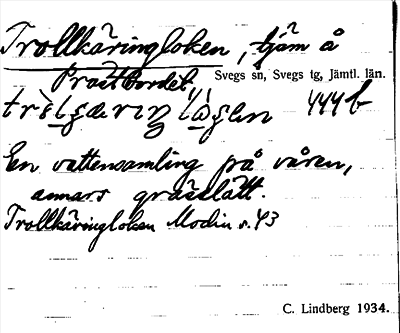 Trollkäringloken, tjärn å
Prästbordet,
Svegs sn, Svegs tg, Jämtl. län.
444 b
En vattensamling på våren,
annars grässlätt.
Trollkäringloken Modin s. 43
C. Lindberg 1934.